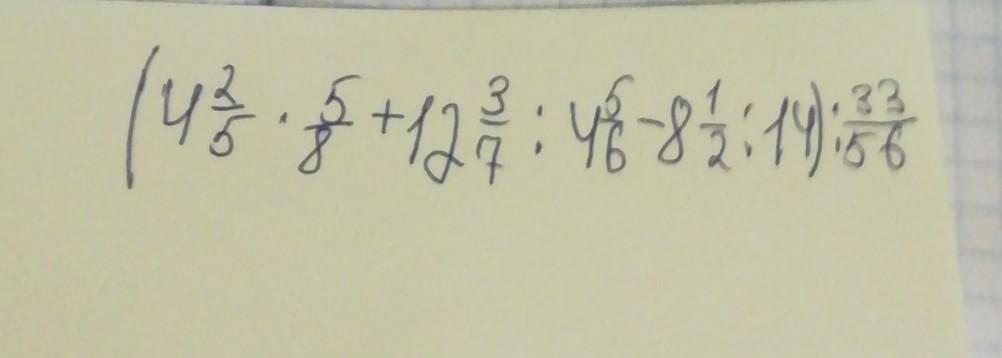 (4 2/5 · 5/8 + 12 3/7 : 4 5/6 - 8 1/2 : 14) : 33/56